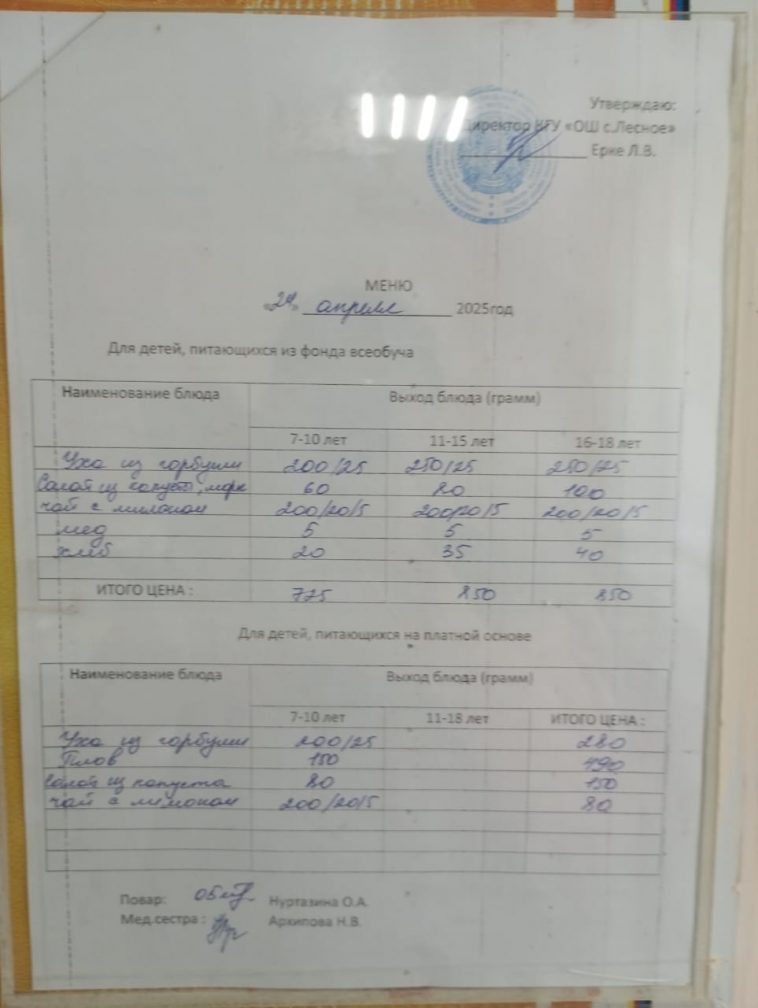 Утверждаю:
Директор КГУ «ОШ с.Лесное»
Ерке Л.В.
МЕНЮ
«24» апреля 2025год
Для детей, питающихся из фонда всеобуча
Наименование блюда Выход блюда (грамм)
7-10 лет 11-15 лет 16-18 лет
Уха из горбуши 200/25 250/25 250/25
Салат из капусты, морк 60 80 100
чай с лимоном 200/20/5 200/20/5 200/20/5
мед 5 5 5
хлеб 20 35 40
ИТОГО ЦЕНА : 775 850 850
Для детей, питающихся на платной основе
Наименование блюда Выход блюда (грамм)
7-10 лет 11-18 лет ИТОГО ЦЕНА :
Уха из горбуши 200/25 280
Плов 150 490
Салат из капусты 80 150
чай с лимоном 200/20/5 80
Повар: Нуртазина О.А.
Мед.сестра : Архипова Н.В.